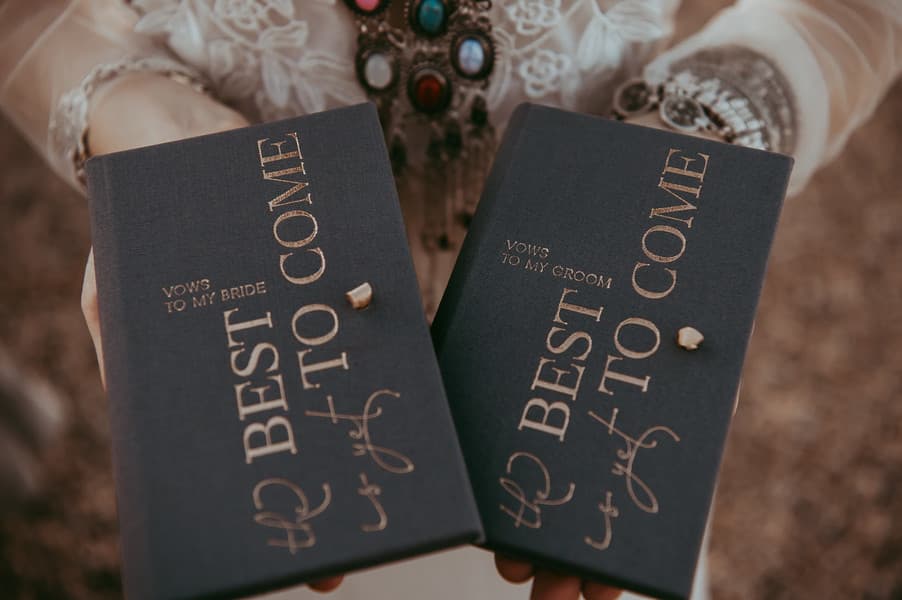 VOWS
TO MY BRIDE
the BEST
is yet TO COME
VOWS
TO MY GROOM
the BEST
is yet TO COME